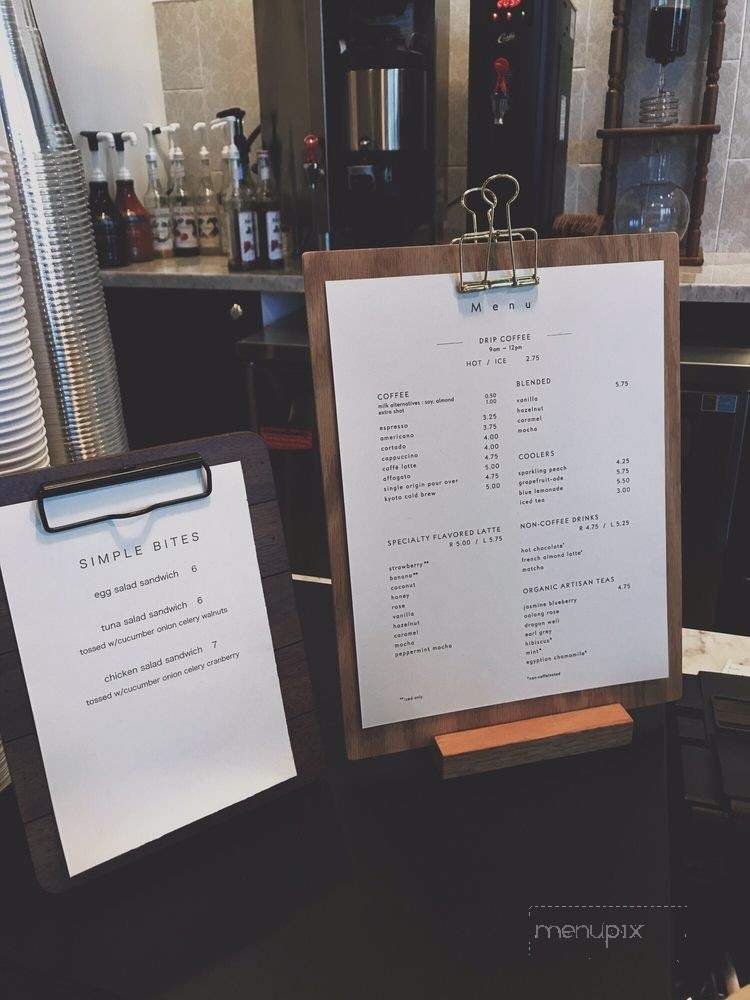 SIMPLE BITES
egg salad sandwich 6
tuna salad sandwich 6
tossed w/cucumber onion celery walnuts
chicken salad sandwich 7
tossed w/cucumber onion celery cranberry
Menu
DRIP COFFEE
9am – 12pm
HOT / ICE 2.75
COFFEE
milk alternatives : soy, almond 0.50
extra shot 1.00
espresso 3.25
americano 3.75
cortado 4.00
cappuccino 4.00
caffé latte 4.75
affogato 5.00
single origin pour over 4.75
kyoto cold brew 5.00
SPECIALTY FLAVORED LATTE
R 5.00 / L 5.75
strawberry**
banana**
coconut
honey
rose
vanilla
hazelnut
caramel
mocha
peppermint mocha
**iced only
BLENDED 5.75
vanilla
hazelnut
caramel
mocha
COOLERS
sparkling peach 4.25
grapefruit-ade 5.75
blue lemonade 5.50
iced tea 3.00
NON-COFFEE DRINKS
R 4.75 / L 5.25
hot chocolate*
french almond latte*
matcha
ORGANIC ARTISAN TEAS 4.75
jasmine blueberry
oolong rose
dragon well
earl grey
hibiscus*
mint*
egyptian chamomile*
*non-caffeinated
menupix